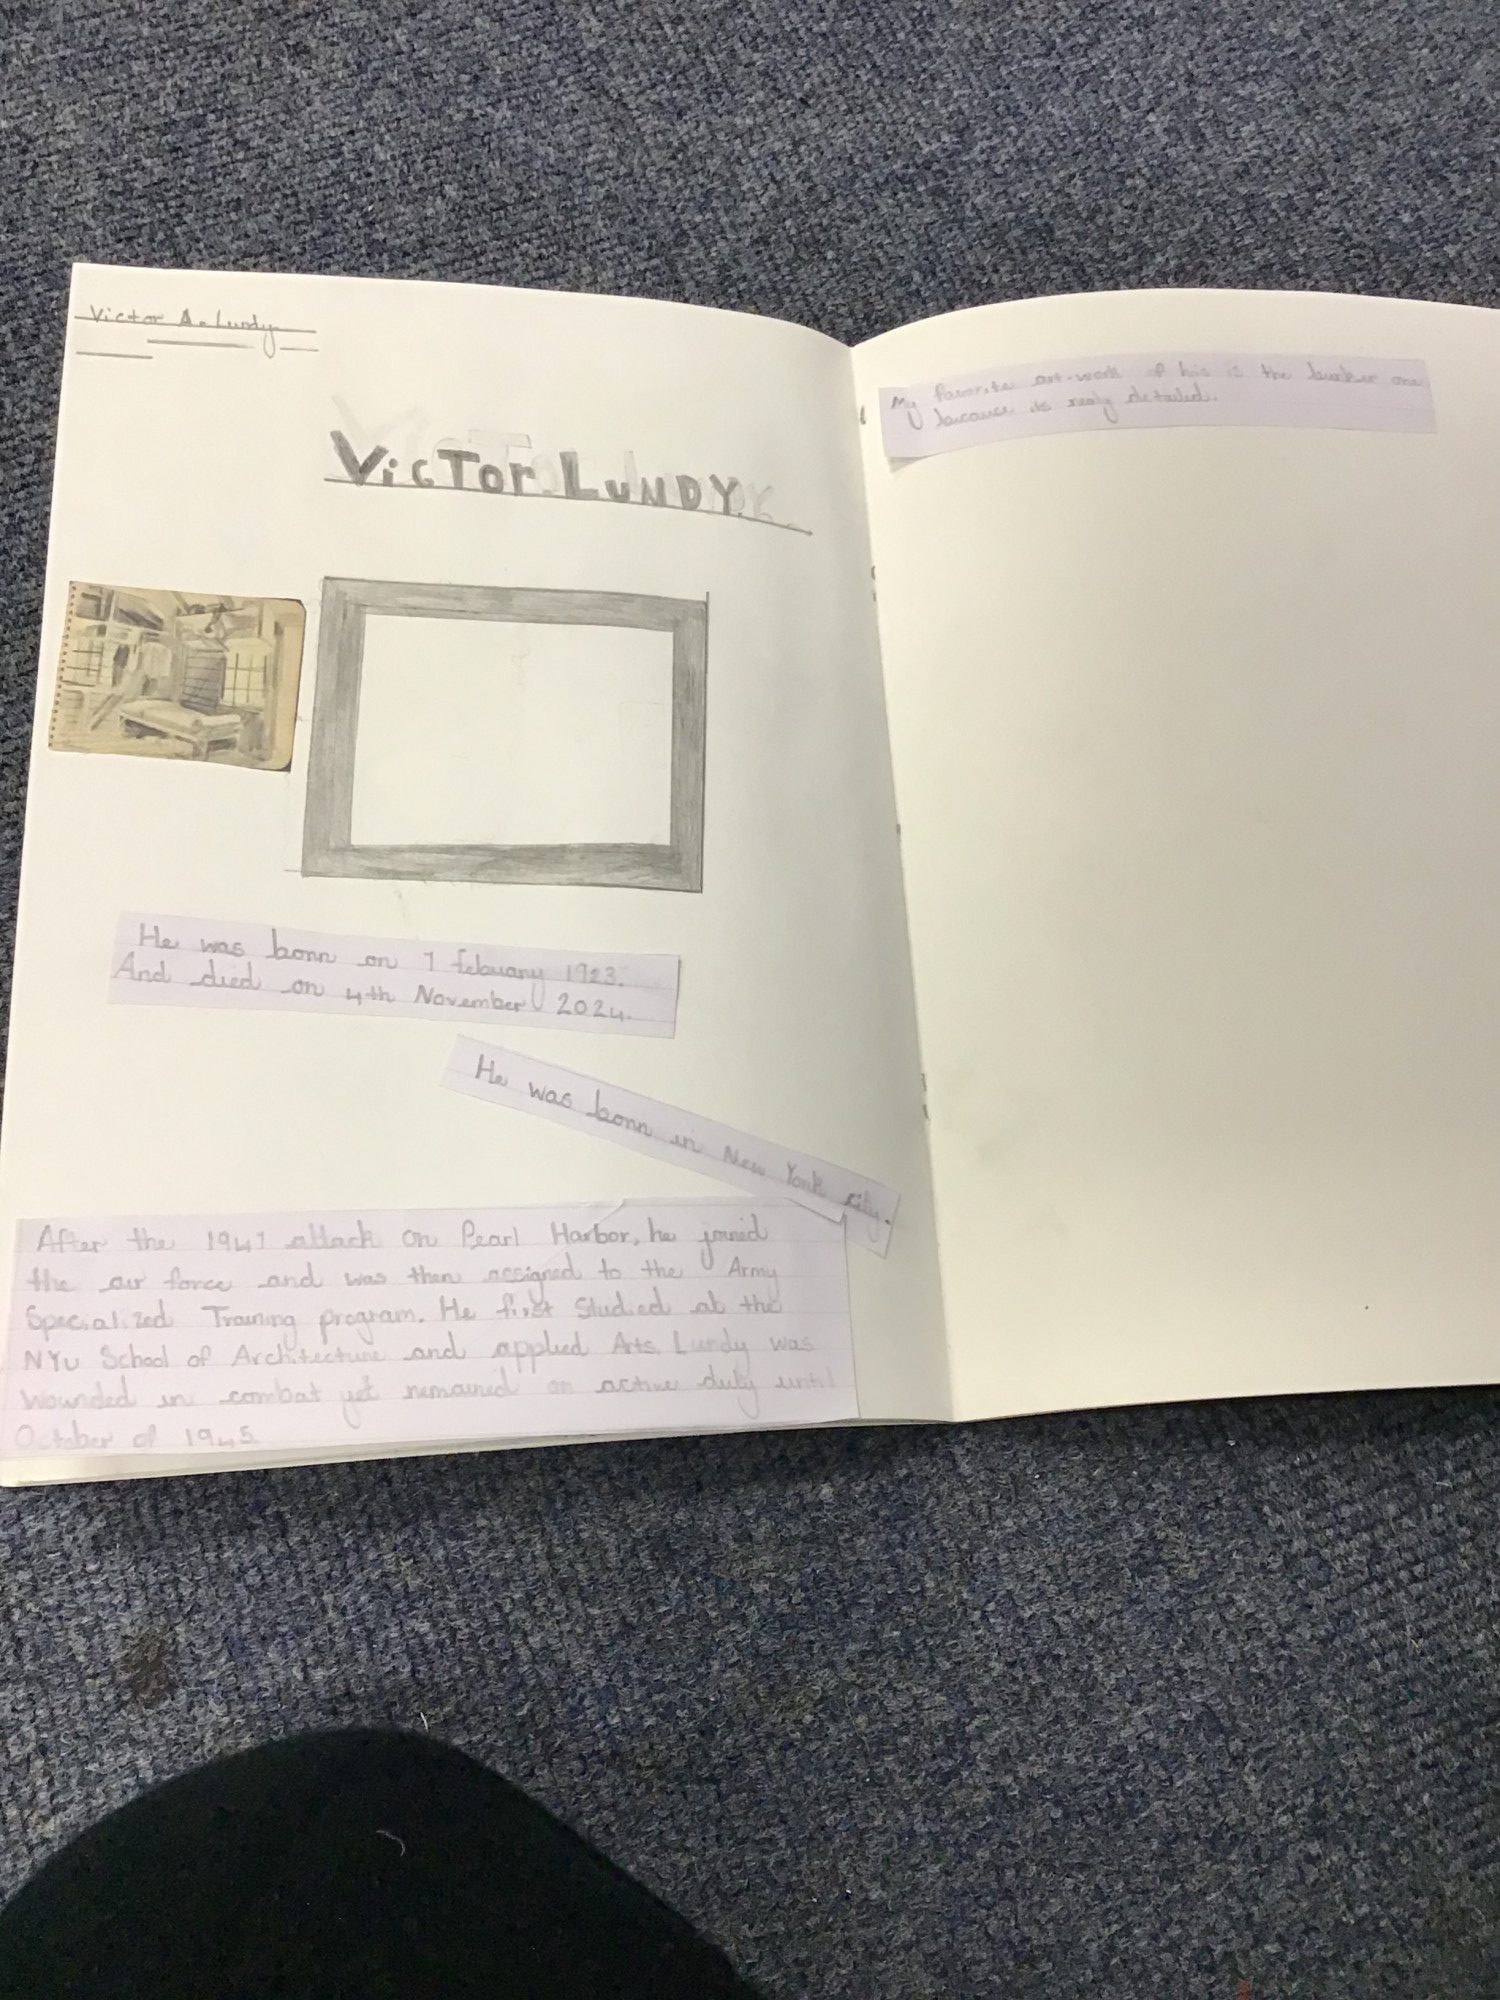 Victor A. Lundy
VicTor Lundy.
He was born on 7 febuary 1923.
And died on 4th November 2024.
He was born in New York city.
After the 1941 attack on Pearl Harbor, he joined
the air force and was then assigned to the Army
Specialized Training program. He first Studied at the
NYU School of Architecture and applied Arts. Lundy was
Wounded in combat yet remained on active duty until
October of 1945.
My favorite art-work of his is the bunker one
because its realy detailed.